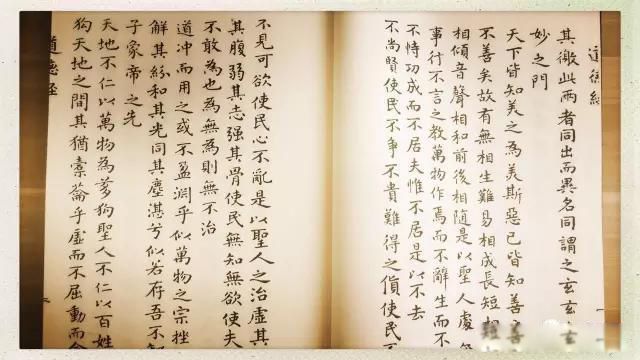 道德經
其徼此兩者同出而異名同謂之玄玄
妙之門
天下皆知美之為美斯惡已皆知善
不善矣故有無相生難易相成長短
相傾音聲相和前後相隨是以聖人處
事行不言之教萬物作焉而不辭生而不
不恃功成而不居夫惟不居是以不去
不尚賢使民不爭不貴難得之貨使民不
不見可欲使民心不亂是以聖人之治虛其
其腹弱其志强其骨使民無知無欲使夫
不敢為也為無為則無不治
道冲而用之或不盈淵乎似萬物之宗挫
解其紛和其光同其塵湛兮似若存吾不
子象帝之先
天地不仁以萬物為芻狗聖人不仁以百姓
狗天地之間其猶橐籥乎虛而不屈動而
道德經